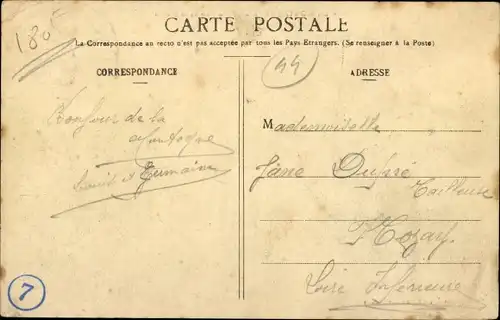 180F
CARTE POSTALE
La Correspondance au recto n'est pas acceptée par tous les Pays Etrangers. (Se renseigner à la Poste)
44
CORRESPONDANCE
ADRESSE
Bonjour de la
Mademoiselle
Jane Dupré
Tailleuse
Louis et Germaine
Loire Inférieure
7